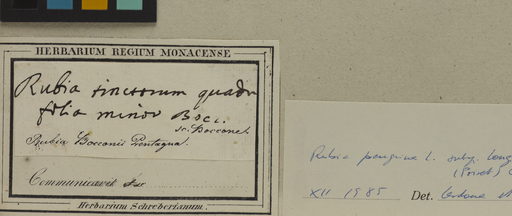 HERBARIUM REGIUM MONACENSE
Rubia tinctorum quadri
folia minor Bocc.
sc. Boccone.
Rubia Bocconii Pentaqua.
Communicavit
Herbarium Schreberianum.
Rubia peregrina L. subsp. long
(Poiret)
XII 1985 Det.